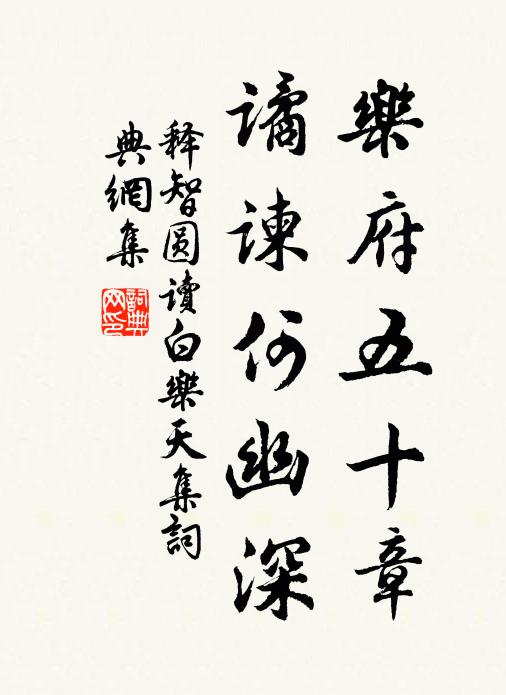 樂府五十章
譎諫何幽深
释智圆讀白樂天集詞
典網集
詞典
网印